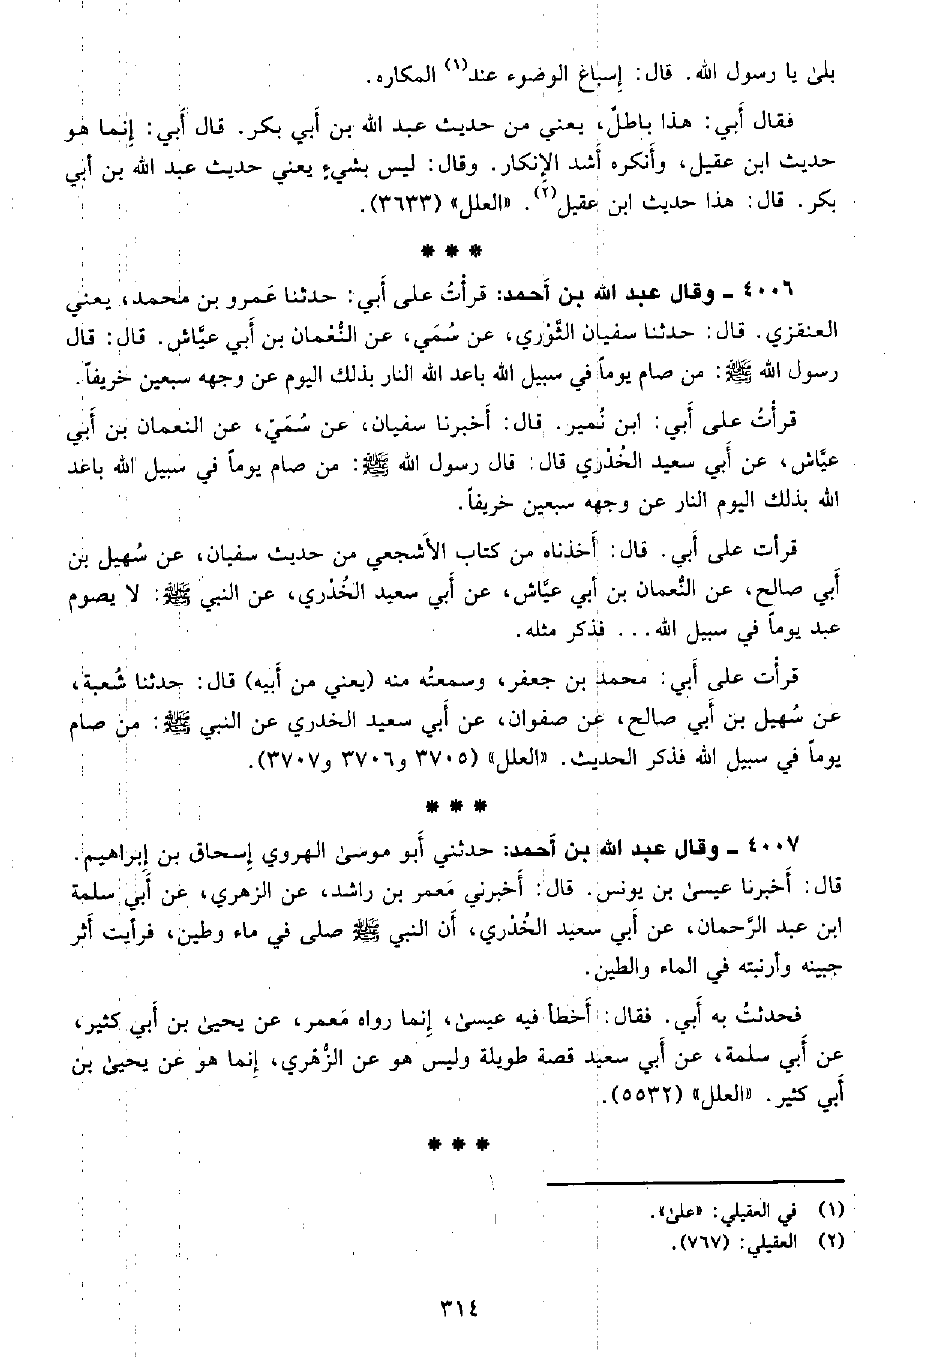 بلىٰ يا رسول الله. قال: إسباغ الوضوء عند(١) المكاره.
فقال أَبي: هذا باطلٌ، يعني من حديث عبد الله بن أَبي بكر. قال أَبي: إنما هو
حديث ابن عقيل، وأنكره أشد الإنكار. وقال: ليس بشيءٍ يعني حديث عبد الله بن أبي
بكر. قال: هذا حديث ابن عقيل(٢). «العلل» (٣٦٣٣).
* * *
٤٠٠٦ ـ وقال عبد الله بن أحمد: قرأتُ على أَبي: حدثنا عَمرو بن محمد، يعني
العنقزي. قال: حدثنا سفيان الثَّوْري، عن سُمَي، عن النُّعمان بن أبي عيَّاش. قال: قال
رسول الله ﷺ: من صام يوماً في سبيل الله باعد الله النار بذلك اليوم عن وجهه سبعين خريفاً.
قرأتُ على أَبي: ابن نُمير. قال: أخبرنا سفيان، عن سُمَيّ، عن النعمان بن أَبي
عيَّاش، عن أَبي سعيد الخُدْري قال: قال رسول الله ﷺ: من صام يوماً في سبيل الله باعد
الله بذلك اليوم النار عن وجهه سبعين خريفاً.
قرأت على أَبي. قال: أخذناه من كتاب الأشجعي من حديث سفيان، عن سُهيل بن
أَبي صالح، عن النُّعمان بن أبي عيَّاش، عن أَبي سعيد الخُدْري، عن النبي ﷺ: لا يصوم
عبد يوماً في سبيل الله... فذكر مثله.
قرأت على أَبي: محمد بن جعفر، وسمعتُه منه (يعني من أبيه) قال: حدثنا شُعبة،
عن سُهيل بن أَبي صالح، عن صفوان، عن أَبي سعيد الخدري عن النبي ﷺ: من صام
يوماً في سبيل الله فذكر الحديث. «العلل» (٣٧٠٥ و٣٧٠٦ و٣٧٠٧).
* * *
٤٠٠٧ ـ وقال عبد الله بن أحمد: حدثني أَبو موسىٰ الهروي إسحاق بن إبراهيم.
قال: أخبرنا عيسىٰ بن يونس. قال: أخبرني مَعمر بن راشد، عن الزهري، عن أَبي سلمة
ابن عبد الرَّحمان، عن أَبي سعيد الخُدْري، أن النبي ﷺ صلى في ماء وطين، فرأيت أثر
جبينه وأرنبته في الماء والطين.
فحدثتُ به أَبي. فقال: أخطأ فيه عيسىٰ، إنما رواه مَعمر، عن يحيىٰ بن أَبي كثير،
عن أَبي سلمة، عن أَبي سعيد قصة طويلة وليس هو عن الزُّهري، إنما هو عن يحيىٰ بن
أَبي كثير. «العلل» (٥٥٣٢).
* * *
(١) في العقيلي: «علىٰ».
(٢) العقيلي: (٧٦٧).
٣١٤